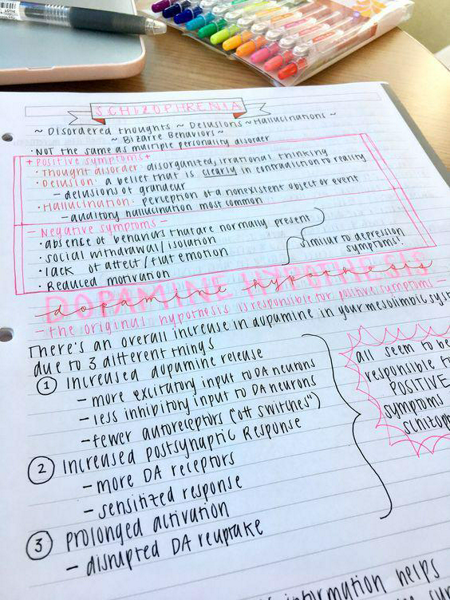 SCHIZOPHRENIA
~ Disordered thoughts ~ Delusions ~ Hallucinations ~
~ Bizarre Behaviors ~
• NOT the same as multiple personality disorder
+ Positive symptoms +
• Thought disorder: disorganized, irrational thinking
• Delusion: a belief that is clearly in contradiction to reality
- delusions of grandeur
• Hallucination: perception of a nonexistent object or event
- auditory hallucination most common
- Negative symptoms -
• absence of behaviors that are normally present
• social withdrawal/isolation
• lack of affect/flat emotion
• Reduced motivation
similar to depression
symptoms!
DOPAMINE HYPOTHESIS
dopamine hypothesis
- the original hypothesis is responsible for positive symptoms -
There's an overall increase in dopamine in your mesolimbic
due to 3 different things
① Increased dopamine release
- more excitatory input to DA neurons
- less inhibitory input to DA neurons
- fewer autoreceptors ("off switches")
② Increased postsynaptic Response
- more DA receptors
- sensitized response
③ Prolonged activation
- disrupted DA reuptake
all seem to be
responsible
POSITIVE
symptoms
information helps